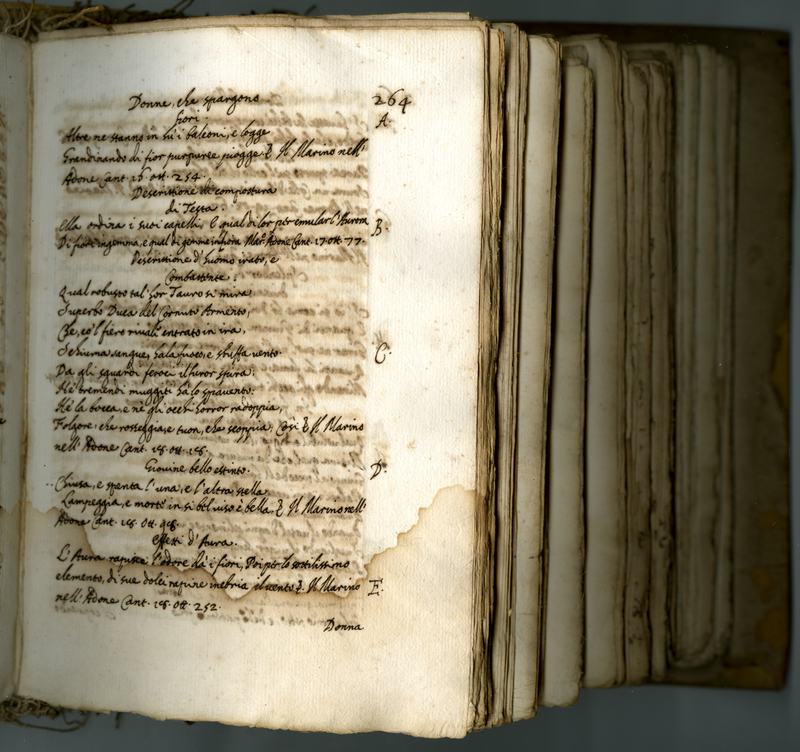 Donne, che spargono
fiori.
264
A.
Altre ne stanno in sù i balconi, e logge
Grandinando di fior purpuree piogge. & Il Marino nell'
Adone Cant. 16 ott. 254.
Descrittione di compostura
di Testa.
Ella ordina i suoi capelli, E qual di lor per emular l'Aurora
B.
Di fiori ingemma, e qual di gemme infiora Mar. Adone Cant. 17. ott. 77.
Descrittione d'huomo irato, e
Combattente.
Qual robusto tal'hor Tauro si mira
Superbo Duca del Cornuto Armento,
Che, co'l fiero rivali entrato in ira,
Schiuma sangue, hala fuoco, e sbuffa vento.
C.
Da gli sguardi feroci il furor spira:
Ne' tremendi muggiti hà lo spavento:
Nè la bocca, e nè gli occhi horror radoppia,
Folgore, che rosseggia, e tuon, che scoppia. Così & Il Marino
nell'Adone Cant. 18. ott. 18.
Giovine bello estinto.
D.
Chiusa, e spenta l'una, e l'altra stella
Lampeggia, e morte in sì bel viso è bella. & Il Marino nell'
Adone Cant. 18. Ott. 98.
Effetti d'Aura.
L'Aura rapisce l'odore dà i fiori, Poi per lo sottilissimo
elemento, di sue dolci rapine inebria il vento &. Il Marino
E.
nell'Adone Cant. 18. Ott. 252.
Donna